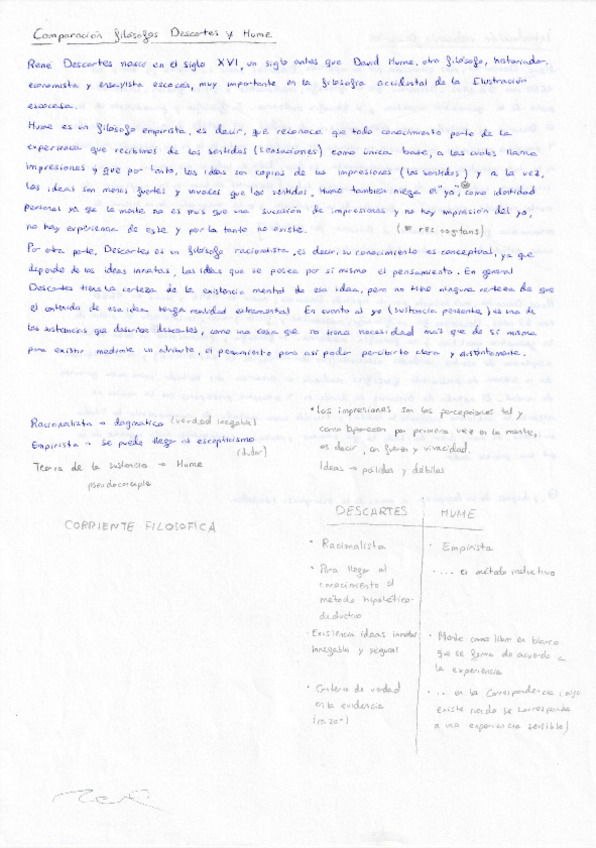 Comparación filósofos Descartes y Hume
René Descartes nació en el siglo XVI, un siglo antes que David Hume, otro filósofo, historiador,
economista y ensayista escocés, muy importante en la filosofía occidental de la Ilustración
escocesa.
Hume es un filósofo empirista, es decir, que reconoce que todo conocimiento parte de la
experiencia que recibimos de los sentidos (sensaciones) como única base, a las cuales llama
impresiones y que por tanto, las ideas son copias de las impresiones (los sentidos) y a la vez,
las ideas son menos fuertes y vivaces que los sentidos. Hume también niega el "yo", como identidad
personal ya que la mente no es más que una sucesión de impresiones y no hay impresión del yo,
no hay experiencia de este y por lo tanto no existe. (* res cogitans)
Por otra parte, Descartes es un filósofo racionalista, es decir, su conocimiento es conceptual, ya que
depende de las ideas innatas, las ideas que se posee por sí mismo el pensamiento. En general
Descartes tiene la certeza de la existencia mental de esa idea, pero no tiene ninguna certeza de que
el contenido de esa idea tenga realidad extramental. En cuanto al yo (sustancia pensante) es una de
las sustancias que describe descartes, como una cosa que no tiene necesidad más que de sí misma
para existir mediante un atributo, el pensamiento para así poder percibirlo clara y distintamente.
Racionalista → dogmática (verdad innegable)
Empirista → se puede llegar al escepticismo
(dudar)
Teoría de la sustancia → Hume
pseudoconcepto
• Las impresiones son las percepciones tal y
como aparecen por primera vez en la mente,
es decir, en fuerza y vivacidad.
Ideas → pálidas y débiles
CORRIENTE FILOSOFICA
DESCARTES HUME
• Racionalista
• Empirista
• Para llegar al
conocimiento el
método hipotético-
deductivo
• ... el método inductivo
• Existencia ideas innatas
innegable y segura
• Mente como libro en blanco
que se forma de acuerdo a
la experiencia
• Criterio de verdad
en la evidencia
(razón)
• ... en la correspondencia (algo
existe cuando se corresponde
a una experiencia sensible)